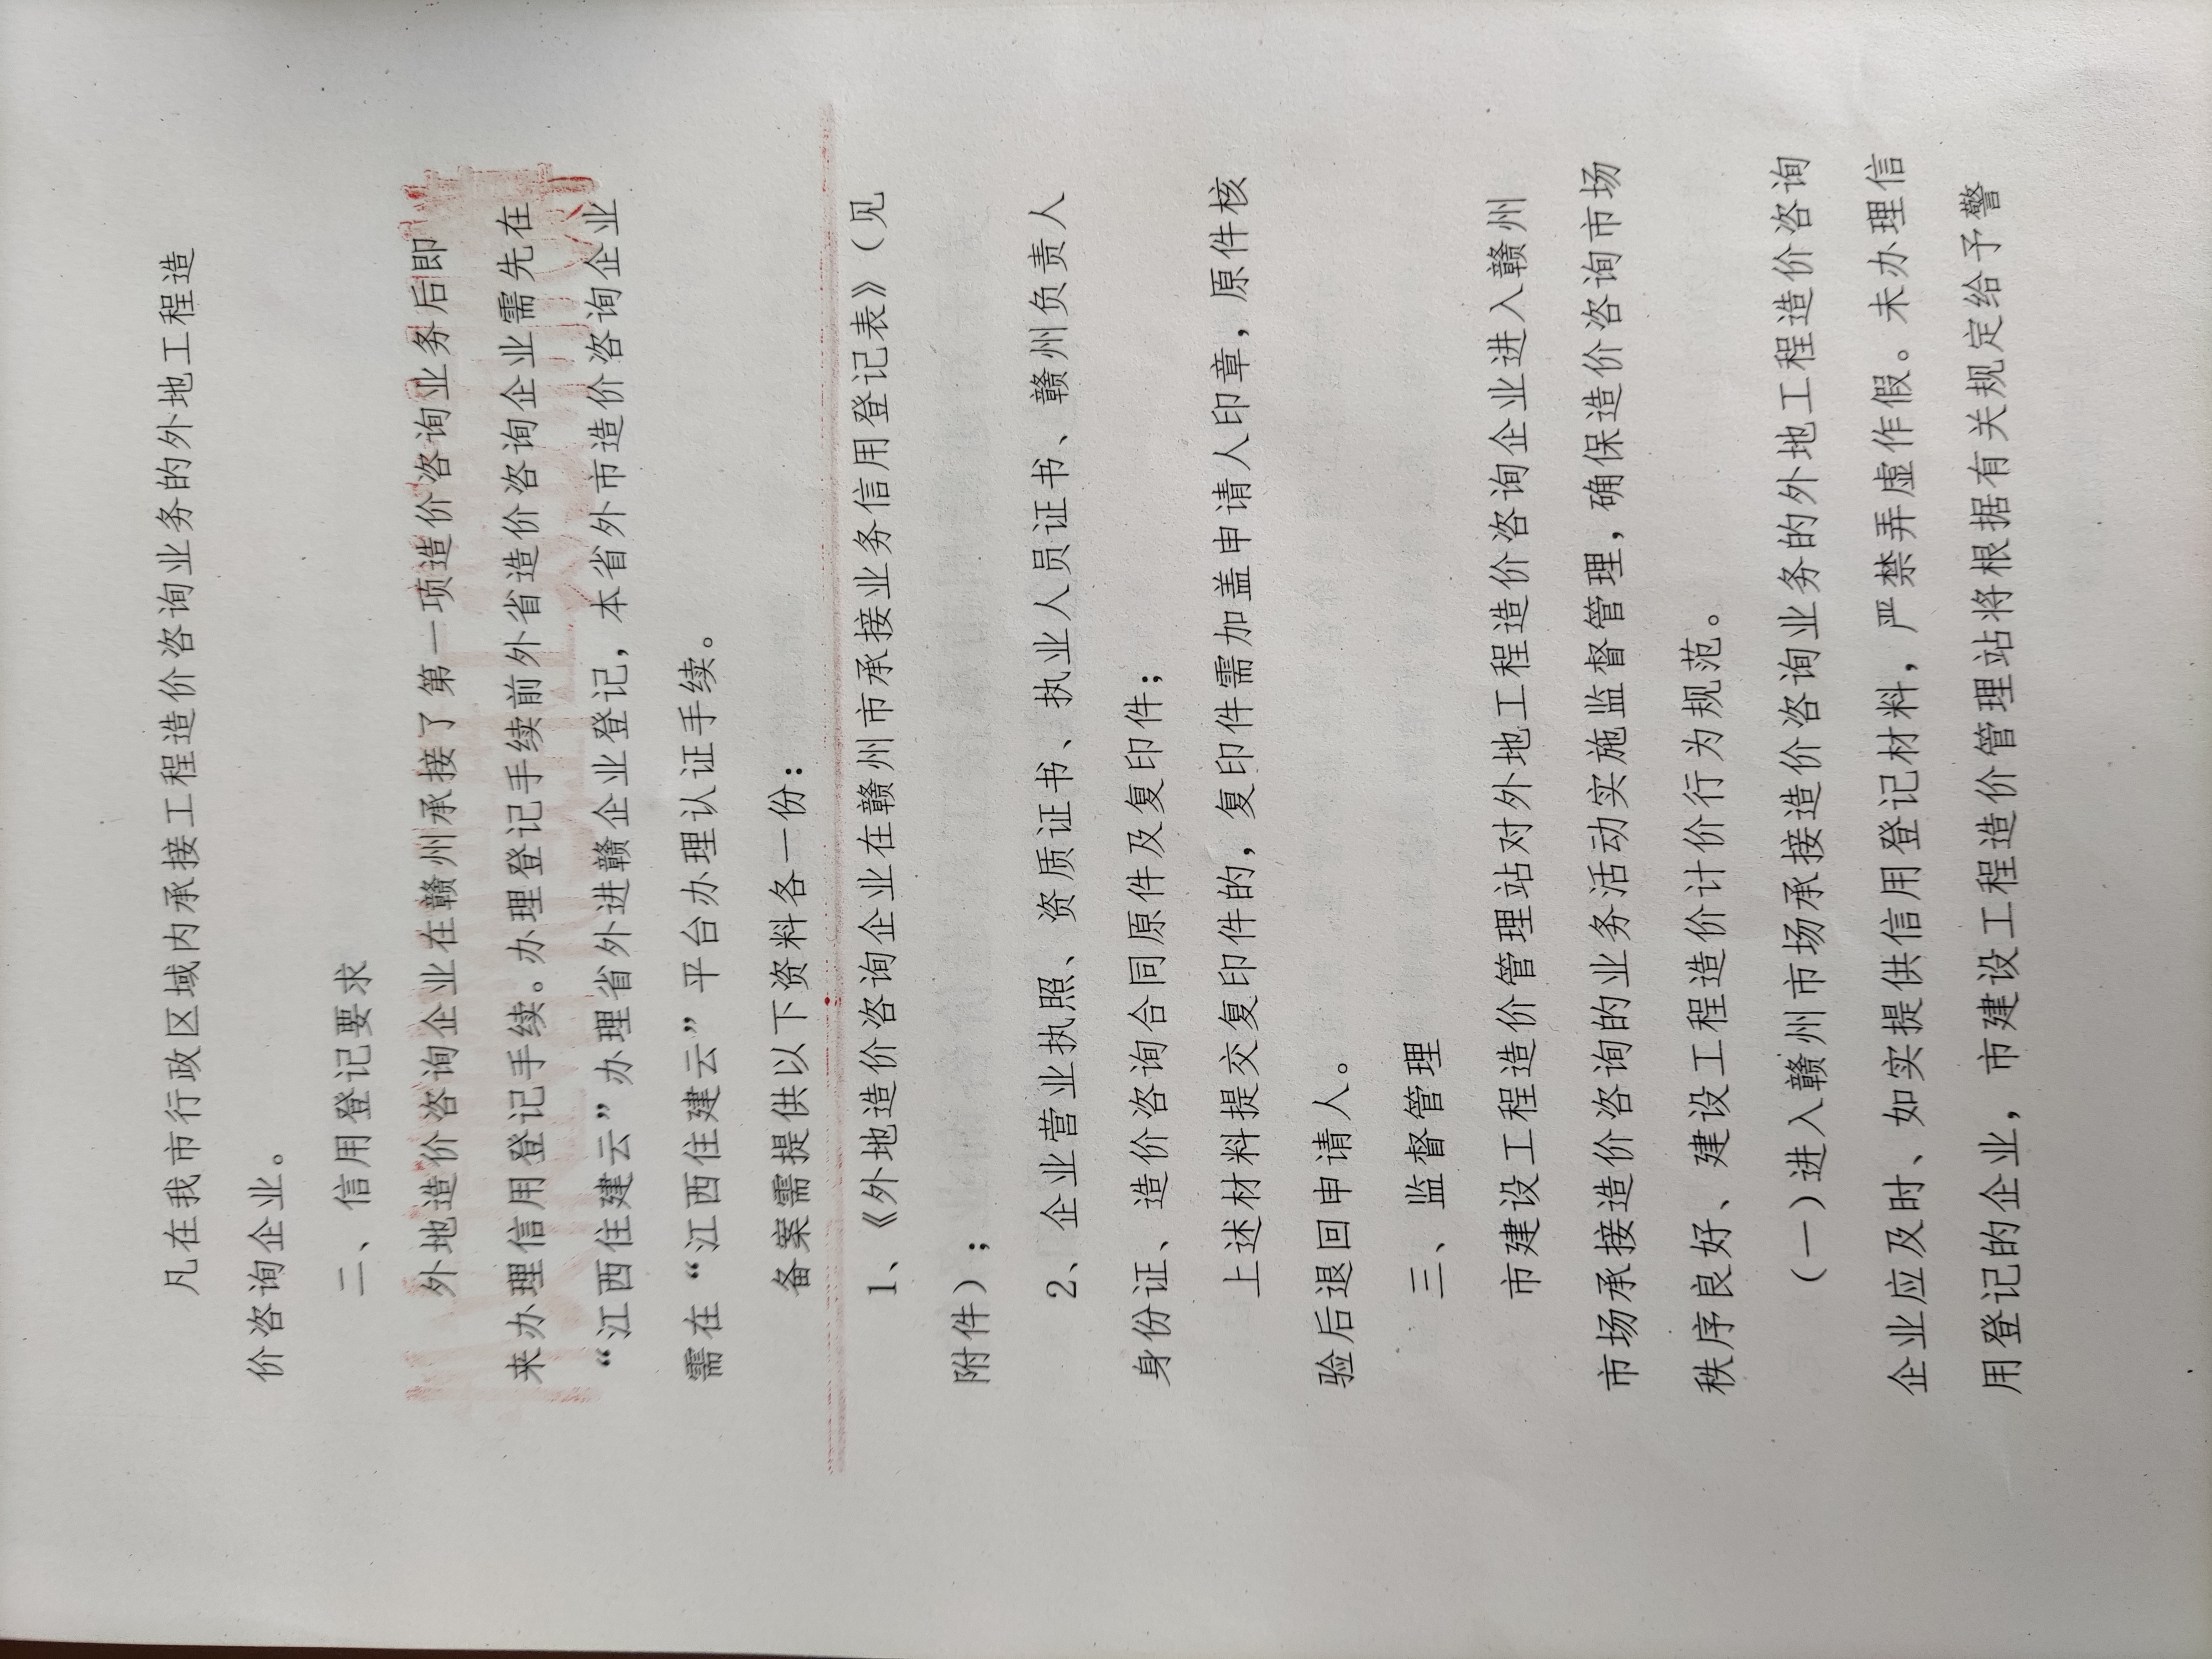 凡在我市行政区域内承接工程造价咨询业务的外地工程造
价咨询企业。
二、信用登记要求
外地造价咨询企业在赣州承接了第一项造价咨询业务后即
来办理信用登记手续。办理登记手续前外省造价咨询企业需先在
“江西住建云”办理省外进赣企业登记，本省外市造价咨询企业
需在“江西住建云”平台办理认证手续。
备案需提供以下资料各一份：
1、《外地造价咨询企业在赣州市承接业务信用登记表》（见
附件）；
2、企业营业执照、资质证书、执业人员证书、赣州负责人
身份证、造价咨询合同原件及复印件；
上述材料提交复印件的，复印件需加盖申请人印章，原件核
验后退回申请人。
三、监督管理
市建设工程造价管理站对外地工程造价咨询企业进入赣州
市场承接造价咨询的业务活动实施监督管理，确保造价咨询市场
秩序良好、建设工程造价计价行为规范。
（一）进入赣州市场承接造价咨询业务的外地工程造价咨询
企业应及时、如实提供信用登记材料，严禁弄虚作假。未办理信
用登记的企业，市建设工程造价管理站将根据有关规定给予警